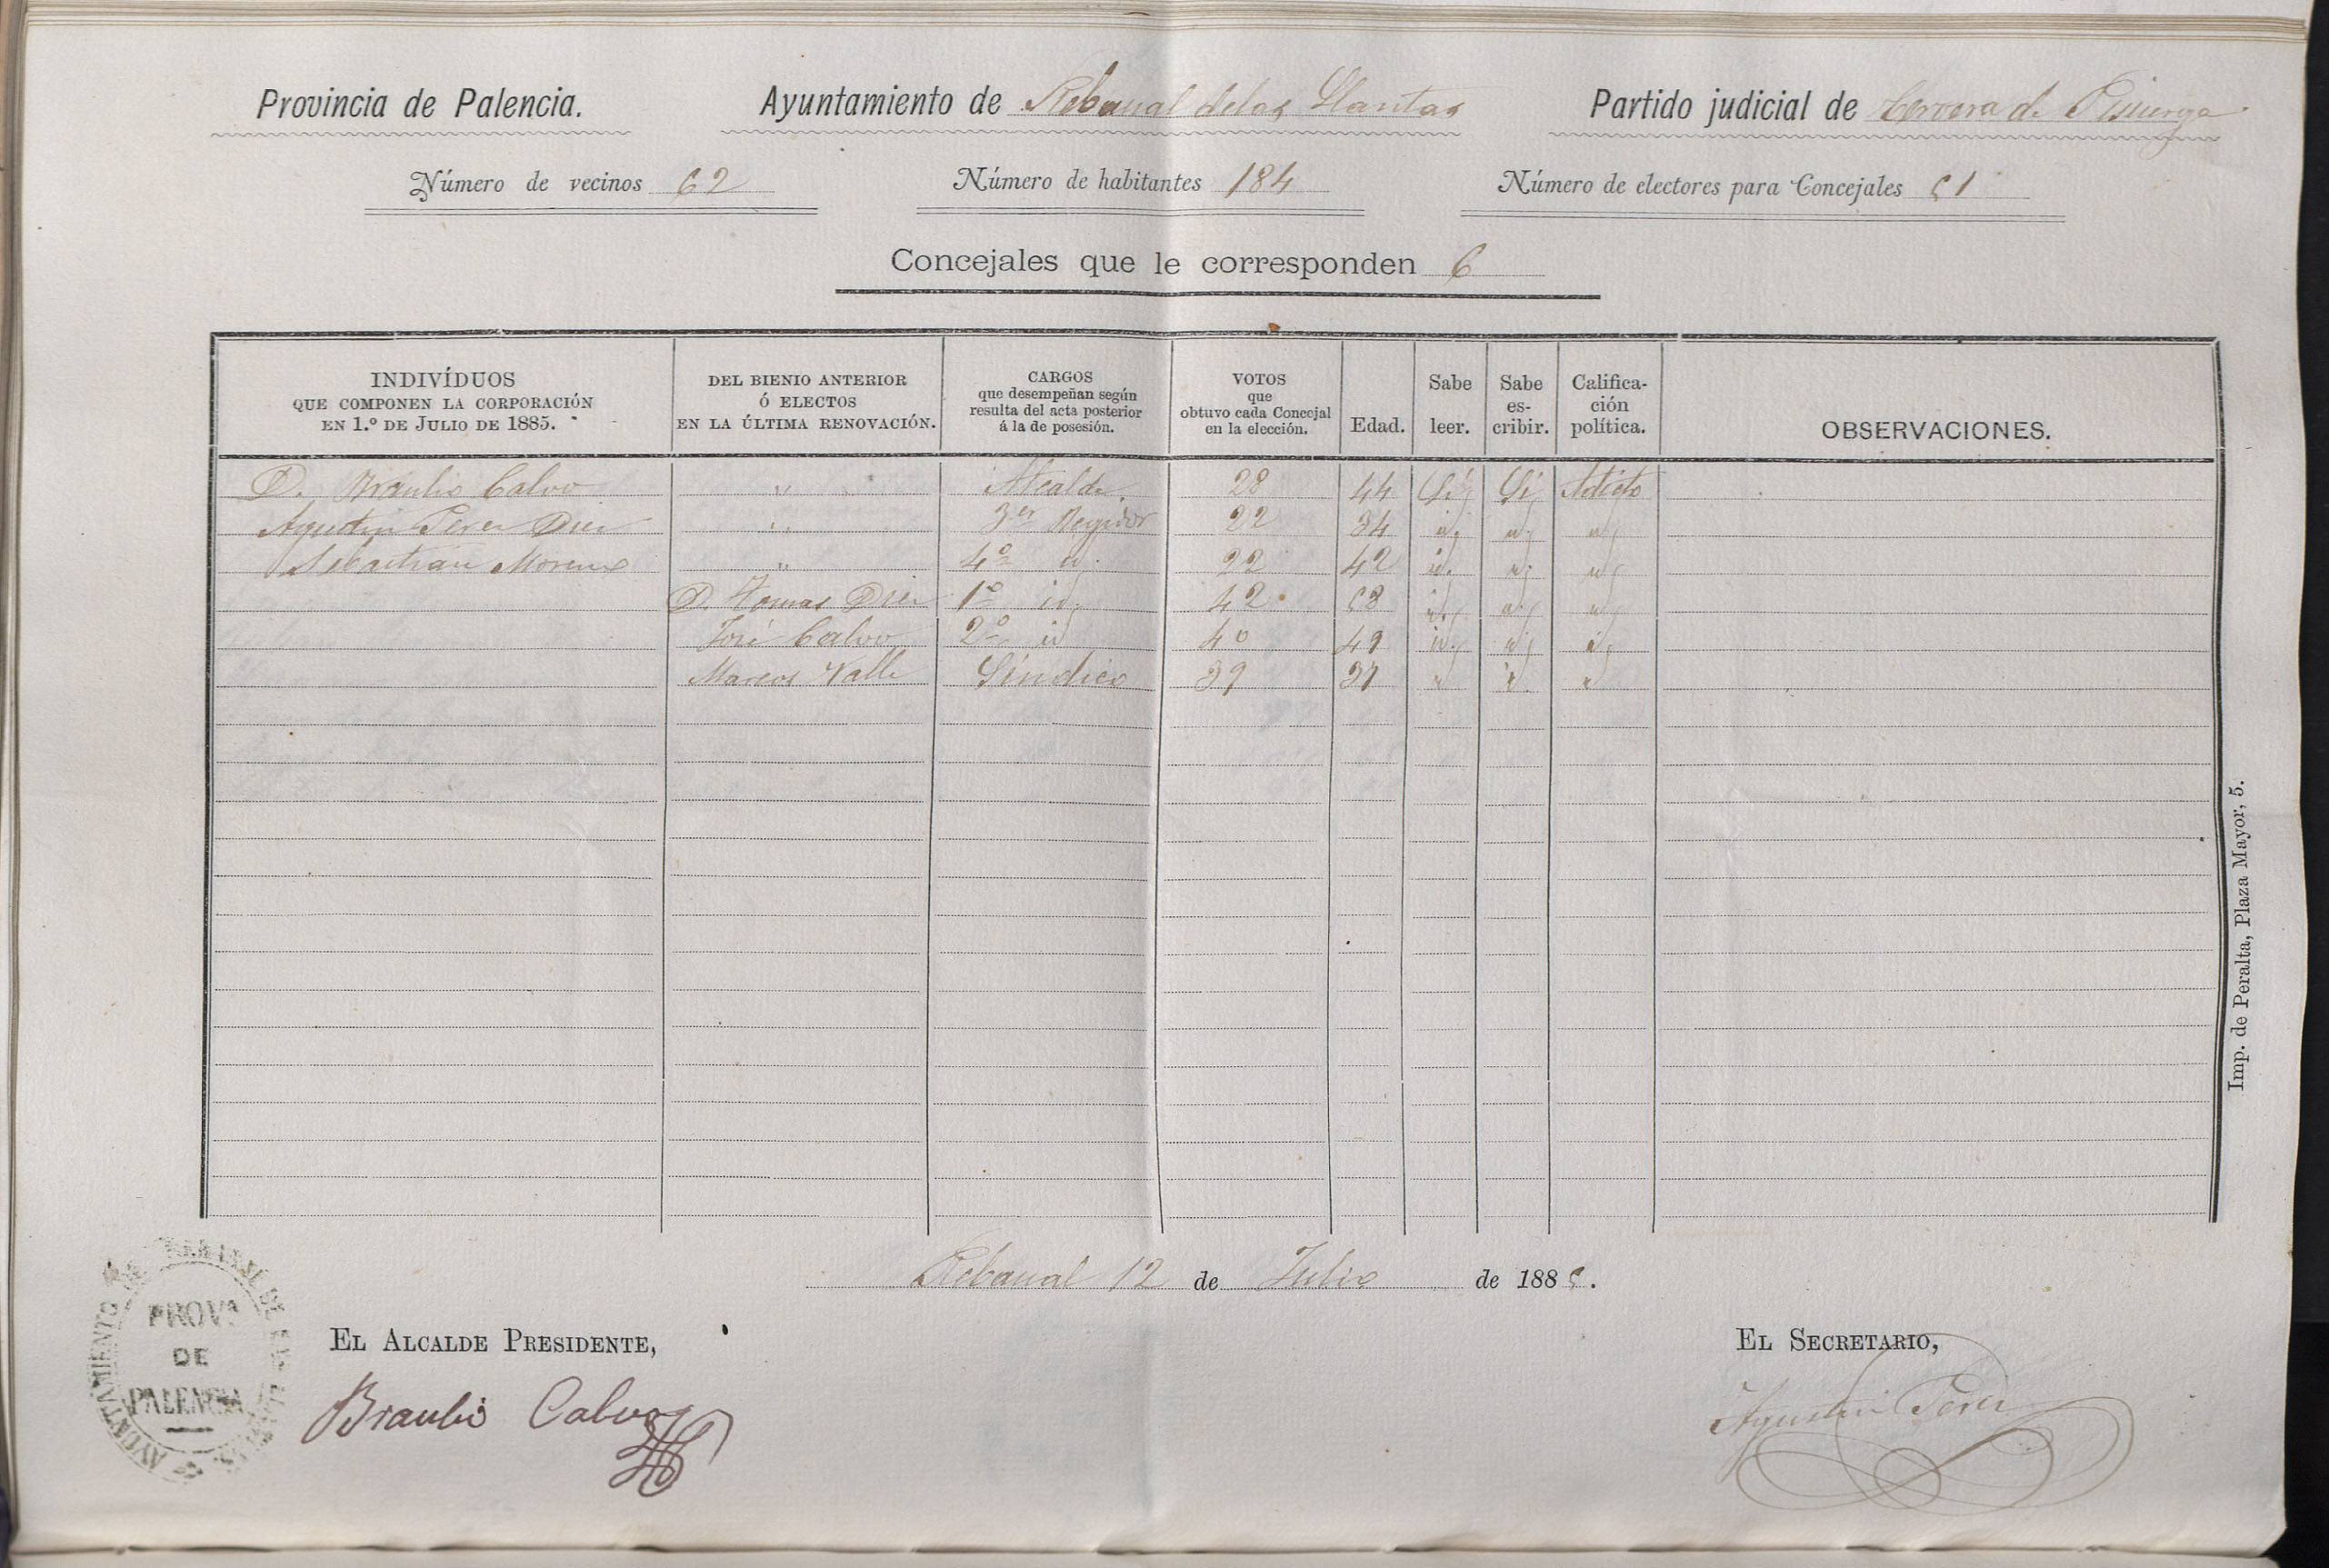 Provincia de Palencia. Ayuntamiento de Rebanal de las Llantas Partido judicial de Cervera de Pisuerga
Número de vecinos 62 Número de habitantes 184 Número de electores para Concejales 51
Concejales que le corresponden 6
INDIVÍDUOS QUE COMPONEN LA CORPORACIÓN EN 1.º DE JULIO DE 1885. DEL BIENIO ANTERIOR Ó ELECTOS EN LA ÚLTIMA RENOVACIÓN. CARGOS que desempeñan según resulta del acta posterior á la de posesión. VOTOS que obtuvo cada Concejal en la elección. Edad. Sabe leer. Sabe es-cribir. Califica-ción política. OBSERVACIONES.
D. Braulio Calvo " Alcalde. 28 44 Sí Sí Adicto
Agustin Perez Diez " 3er Regidor 22 34 id. id. id
Sebastian Moreno " 4º id. 22 42 id. id. id
D. Tomas Diez 1º id. 42 58 id. id. id
José Calvo 2º id 40 49 id. id id
Marcos Valle Síndico 39 37 id id. id
Rebanal 12 de Julio de 1885.
EL ALCALDE PRESIDENTE, EL SECRETARIO,
Braulio Calvo Agustin Perez
AYUNTAMIENTO DE
PROVª
DE
PALENCIA
Imp. de Peralta, Plaza Mayor, 5.